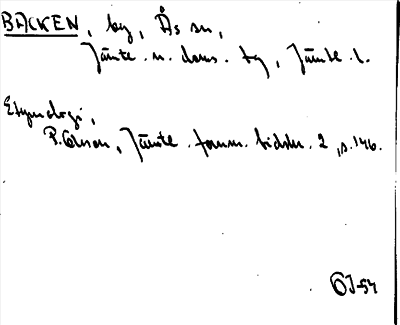 BACKEN, by, Ås sn,
Jämte. n. doms. tg, Jämtl. l.
Etymologi,
P. Olsson, Jämtl. fornm. tidskr. 2, s. 146.
OJ-54